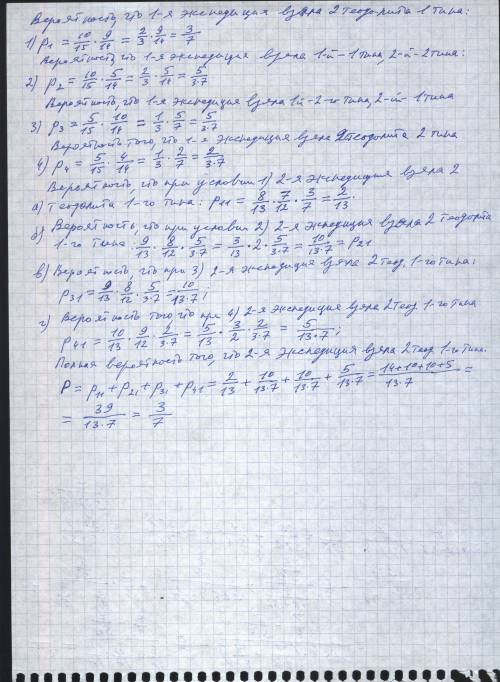 Вероятность, что 1-я экспедиция взяла 2 теодолита 1 типа:
1) p₁ = 10/15 · 9/14 = 2/3 · 9/14 = 3/7
Вероятность, что 1-я экспедиция взяла 1-й – 1 типа, 2-й – 2 типа:
2) p₂ = 10/15 · 5/14 = 2/3 · 5/14 = 5/3·7
Вероятность, что 1-я экспедиция взяла 1й – 2-го типа, 2-й – 1 типа
3) p₃ = 5/15 · 10/14 = 1/3 · 5/7 = 5/3·7
Вероятность того, что 1-я экспедиция взяла 2 теодолита 2 типа
4) p₄ = 5/15 · 4/14 = 1/3 · 2/7 = 2/3·7
Вероятность, что при условии 1) 2-я экспедиция взяла 2
а) теодолита 1-го типа: p₁₁ = 8/13 · 7/12 · 3/7 = 2/13.
б) Вероятность, что при условии 2) 2-я экспедиция взяла 2 теодолита
1-го типа 9/13 · 8/12 · 5/3·7 = 3/13 · 2 · 5/3·7 = 10/13·7 = p₂₁
в) Вероятность, что при 3) 2-я экспедиция взяла 2 теод. 1-го типа:
p₃₁ = 9/13 · 8/12 · 5/3·7 = 10/13·7;
г) Вероятность того что при 4) 2-я экспедиция взяла 2 теод. 1-го типа
p₄₁ = 10/13 · 9/12 · 2/3·7 = 5/13 · 3/2 · 2/3·7 = 5/13·7;
Полная вероятность того, что 2-я экспедиция взяла 2 теод 1-го типа.
P = p₁₁ + p₂₁ + p₃₁ + p₄₁ = 2/13 + 10/13·7 + 10/13·7 + 5/13·7 = 14+10+10+5/13·7 =
= 39/13·7 = 3/7